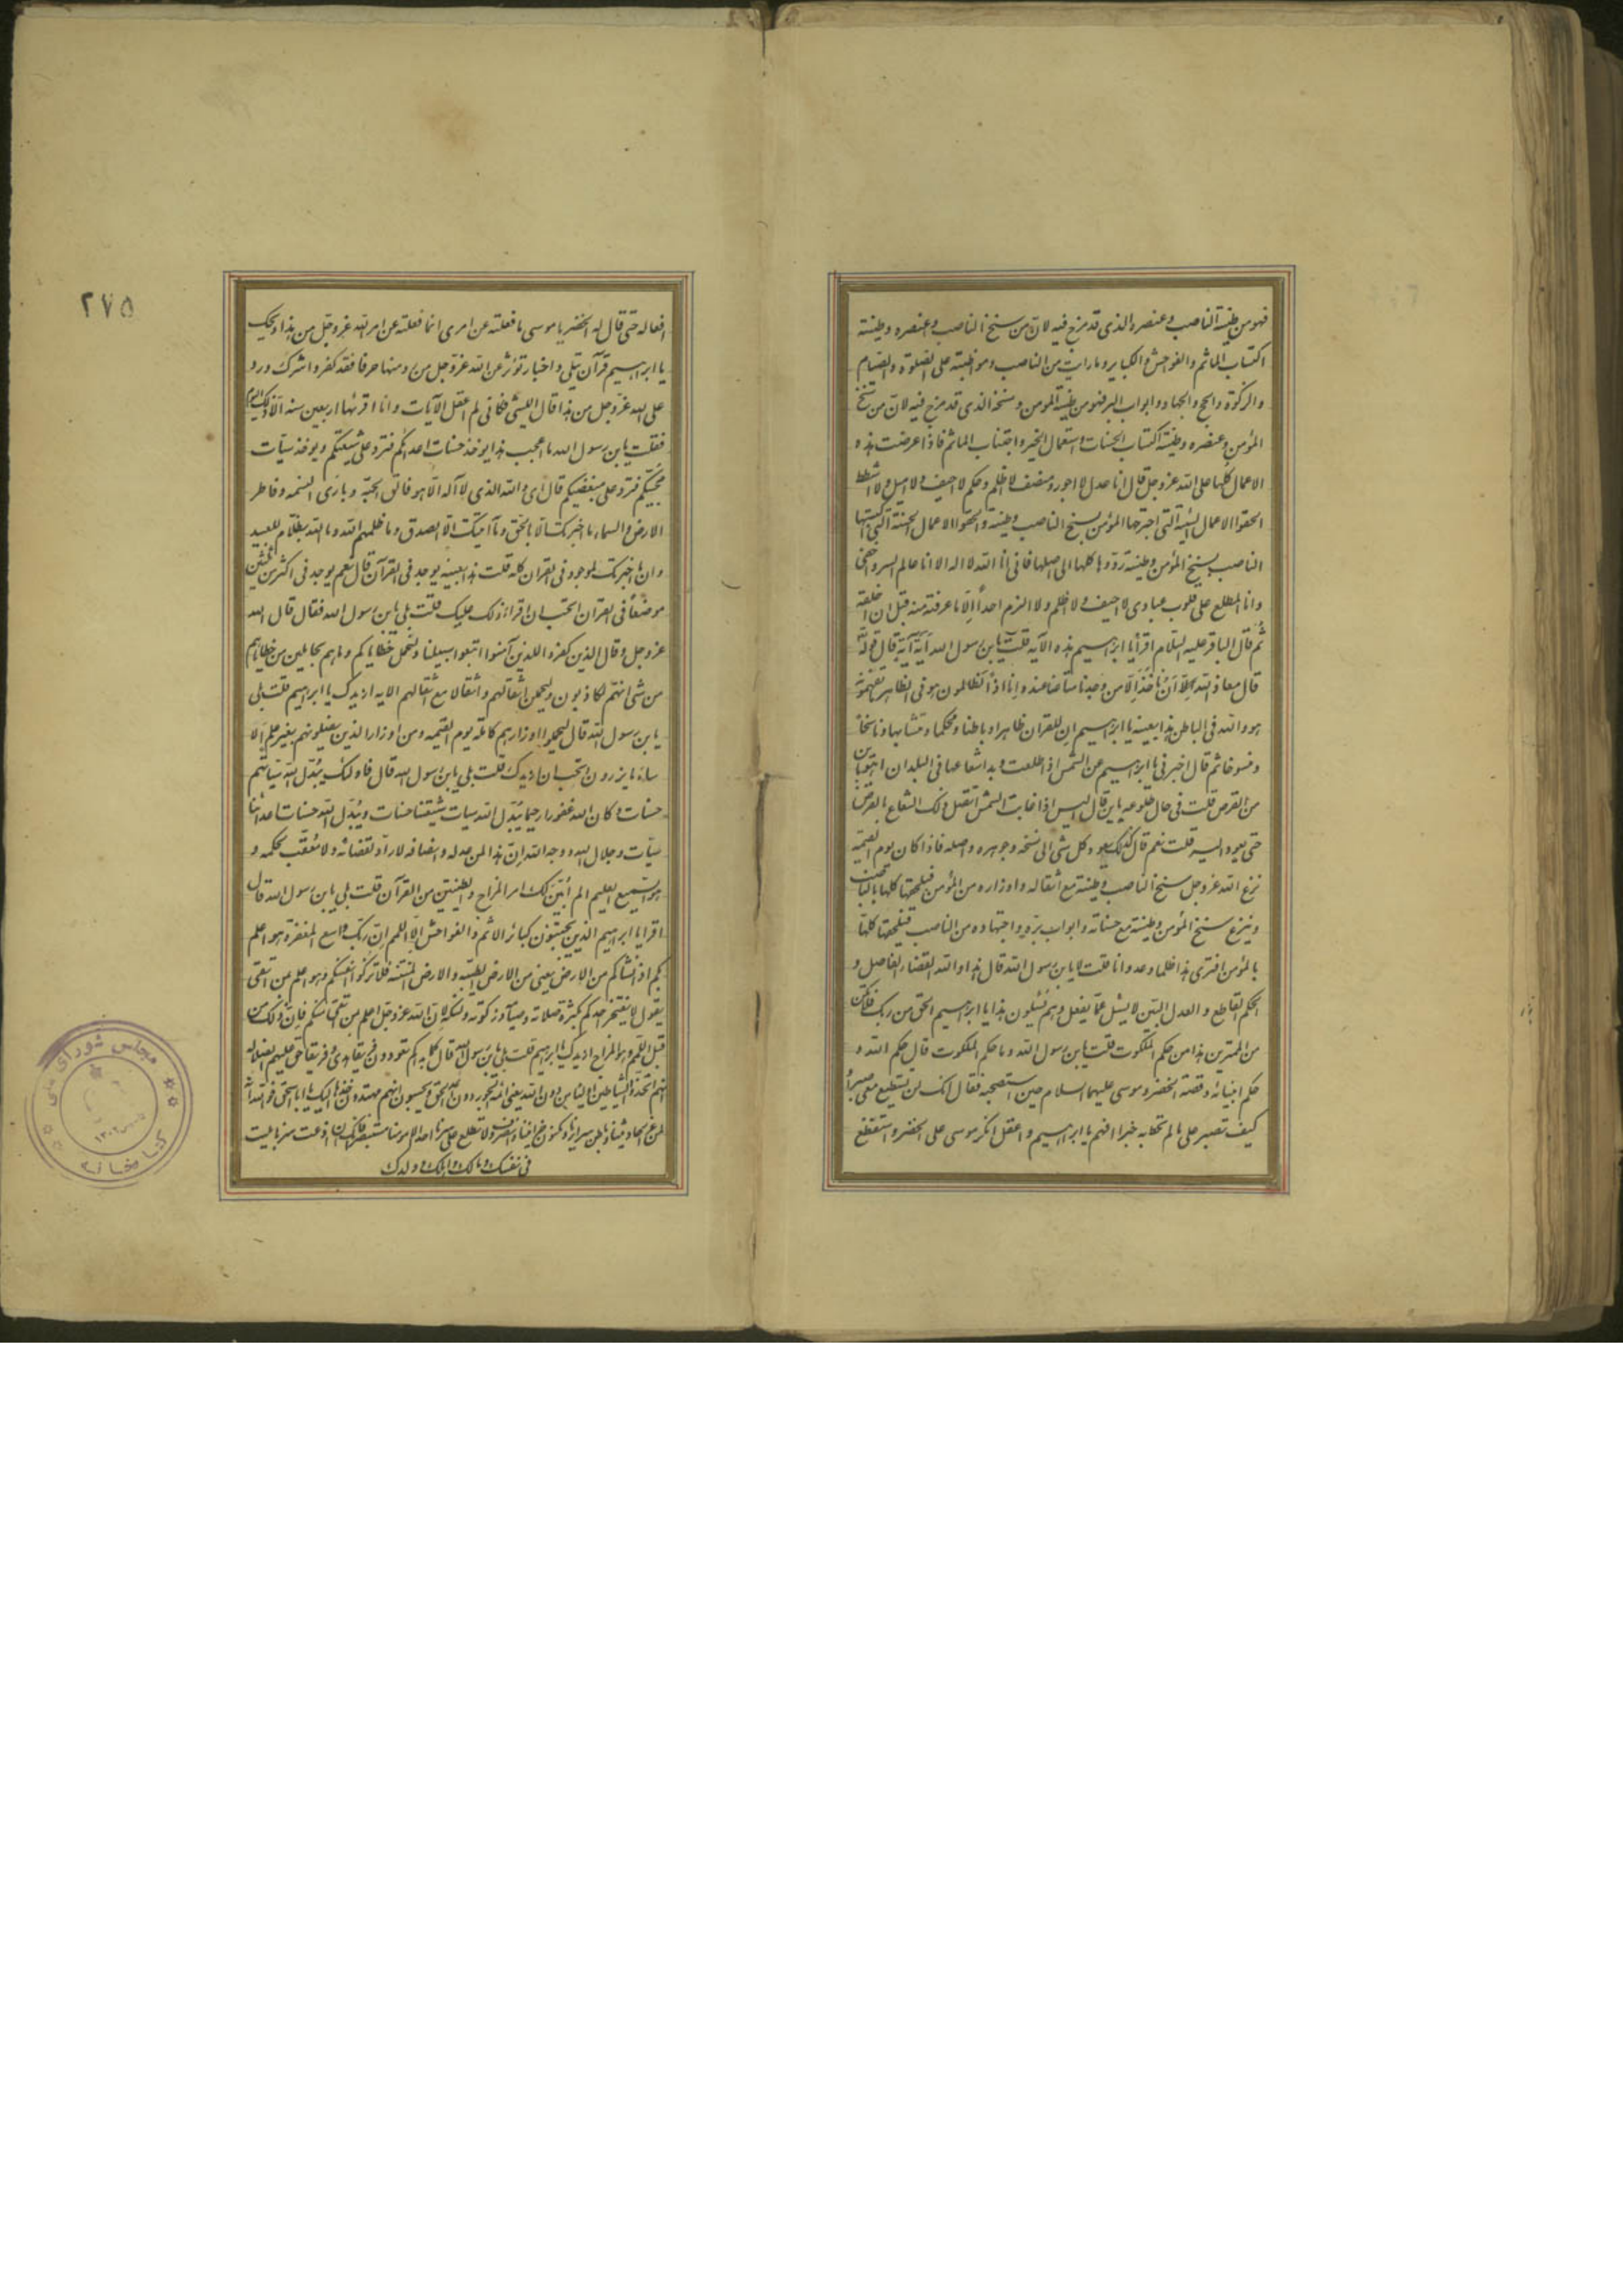 فهو من طينة الناصب وعنصره الذي قد مزج فيه لان من سنخ الناصب وعنصره وطينته
اكتساب المأثم والفواحش والكباير وما رايت من الناصب ومواظبته على الصلوة والصيام
والزكوة والحج والجهاد وابواب البر فهو من طينة المؤمن وسنخه الذي قد مزج فيه لان من سنخ
المؤمن وعنصره وطينته اكتساب الحسنات واستعمال الخير واجتناب المأثم فاذا عرضت هذه
الاعمال كلها على الله عز وجل قال انا عدل لا اجور ومنصف لا اظلم وحكم لا احيف ولا اميل ولا اشطط
الحقوا الاعمال السيئة التي اجترحها المؤمن بسنخ الناصب وطينته والحقوا الاعمال الحسنة التي اكتسبها
الناصب بسنخ المؤمن وطينته ردّوها كلها الى اصلها فاني انا الله لا اله الا انا عالم السر واخفى
وانا المطلع على قلوب عبادي لا احيف ولا اظلم ولا الزم احداً الّا ما عرفته منه قبل ان اخلقه
ثم قال الباقر عليه السلام اقرأ يا ابراهيم هذه الآية قلت يابن رسول الله اَيّة آية قال قوله تعالى
قال معاذ الله ان نأخذ الّا من وجدنا متاعنا عنده وانا اذاً لظالمون هو في الظاهر تفهمونه
هو والله في الباطن هذا بعينه يا ابراهيم ان للقران ظاهرا وباطنا ومحكما ومتشابها وناسخاً
ومنسوخا ثم قال اخبرني يا ابراهيم عن الشمس اذا طلعت وبدا شعاعها في البلدان اهو باين
من القرص قلت في حال طلوعه باين قال اليس اذا غابت الشمس اتصل ذلك الشعاع بالقرص
حتى يعود اليه قلت نعم قال كذلك يعود كل شئ الى سنخه وجوهره واصله فاذا كان يوم القيمة
نزع الله عز وجل سنخ الناصب وطينته مع اثقاله واوزاره من المؤمن فيلحقها كلها بالناصب
وينزع سنخ المؤمن وطينته مع حسناته وابواب برّه واجتهاده من الناصب فيلحقها كلها
بالمؤمن افترى هذا ظلما وعدوانا قلت لا يابن رسول الله قال هذا والله القضاء الفاصل و
الحكم القاطع والعدل البيّن لا يسئل عمّا يفعل وهم يُسئلون هذا يا ابراهيم الحق من ربك فلا تكن
من الممترين هذا من حكم الملكوت قلت يابن رسول الله وما حكم الملكوت قال حكم الله و
حكم انبيائه وقصة الخضر وموسى عليهما السلام حين استصحبه فقال انك لن تستطيع معي صبراً
كيف تصبر على ما لم تحط به خبرا افهم يا ابراهيم واعقل انكر موسى على الخضر واستفظع
٢٧٥
افعاله حتى قال له الخضر يا موسى ما فعلته عن امري انما فعلته عن امر الله عز وجل من هذا ويحك
يا ابراهيم قرآن يتلى واخبار تؤثر عن الله عز وجل من رد منها حرفا فقد كفر واشرك ورد
على الله عز وجل من هذا قال الليثي فكاني لم اعقل الآيات وانا اقرئها اربعين سنه الّا ذلك اليوم
فقلت يابن رسول الله ما اعجب هذا يوخذ حسنات اعدائكم فترد على شيعتكم ويوخذ سيّات
محبيكم فترد على مبغضيكم قال اي والله الذي لا آله الّا هو فالق الحبّة وبارئ النسمه وفاطر
الارض والسماء ما اخبرتك الّا بالحق وما انبيتك الّا بالصدق وما ظلمهم الله وما الله بظلّام للعبيد
وان ما اخبرتك لموجود في القران كله قلت هذا بعينه يوجد في القرآن قال نعم يوجد في اكثر من ثلثين
موضعاً في القران اتحب ان اقرا ذلك عليك قلت بلى يابن رسول الله فقال قال الله
عز وجل وقال الذين كفروا للذين آمنوا اتبعوا سبيلنا ولنحمل خطاياكم وما هم بحاملين من خطاياهم
من شئ انهم لكاذبون وليحملن اثقالهم واثقالا مع اثقالهم الايه ازيدك يا ابراهيم قلت بلى
يابن رسول الله قال ليحملوا اوزارهم كاملة يوم القيمه ومن اوزار الذين يضلونهم بغير علم الا
ساء ما يزرون اتحب ان ازيدك قلت بلى يابن رسول الله قال فاولئك يُبدّل الله سيّاتهم
حسنات وكان الله غفورا رحيما يُبدّل الله سيات شيعتنا حسنات ويُبدّل الله حسنات اعدائنا
سيّات وجلال الله ووجه الله ان هذا لمن عدله وانصافه لا رادّ لقضائه ولا مُعقّب لحكمه و
هو السميع العليم الم اُبيّن لك امر المزاج والطينتين من القرآن قلت بلى يابن رسول الله قال
اقرا يا ابراهيم الذين يجتنبون كبائر الاثم والفواحش الّا اللمم انّ ربّك واسع المغفرة هو اعلم
بكم اذ انشاكم من الارض يعني من الارض الطيّبه والارض المنتنه فلا تزكوا انفسكم هو اعلم بمن اتقى
يقول لا يفتخر احدكم بكثرة صلاته وصيامه وزكوته ونسكه لان الله عز وجل اعلم بمن اتقى منكم فان ذلك من
قبل اللمم وهو المزاج ازيدك يا ابراهيم قلت بلى يابن رسول الله قال كما بداكم تعودون فريقا هدى وفريقا حق عليهم الضلالة
انهم اتخذوا الشياطين اولياء من دون الله يعني ائمة الجور دون ائمة الحق ويحسبون انهم مهتدون خذها اليك يا ابا اسحق فوالله انه
لمن غرر احاديثنا وباطن سرايرنا ومكنون خزايننا وانصرف ولا تطلع على سرنا احدا الا مؤمنا مستبصرا فانك ان اذعت سرنا بليت
في نفسك ومالك واهلك وولدك
مجلس شوراى ملى
كتابخانه